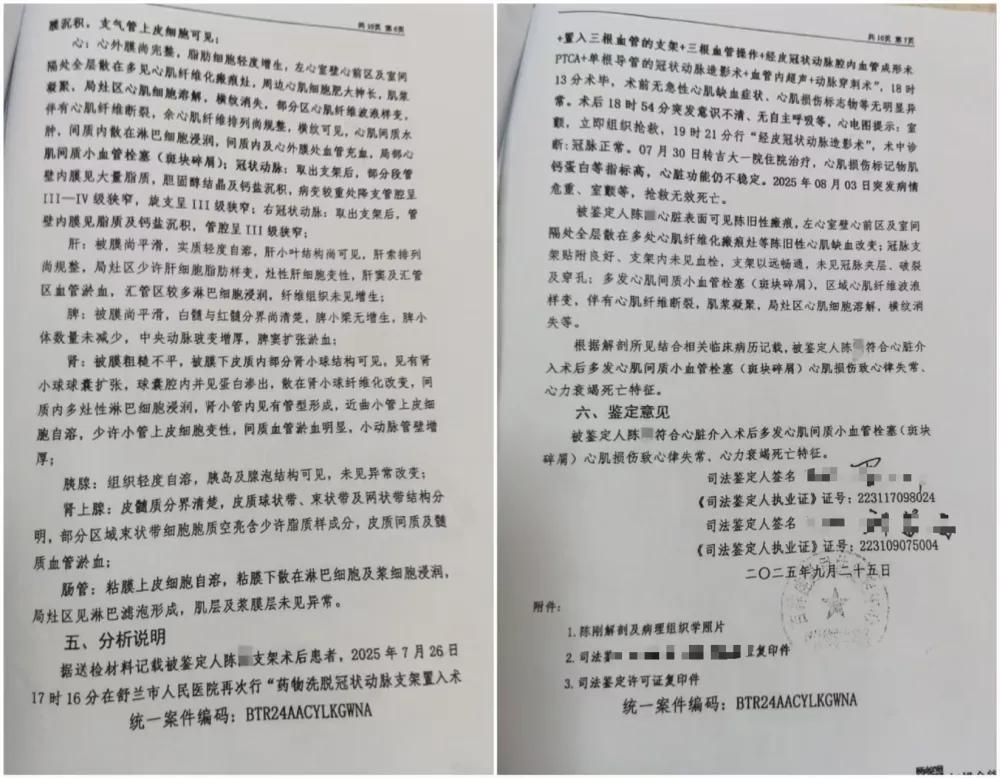 共10页 第6页
膜沉积，支气管上皮细胞可见；
心：心外膜尚完整，脂肪细胞轻度增生，左心室壁心前区及室间
隔处全层散在多见心肌纤维化瘢痕灶，周边心肌细胞肥大抻长，肌浆
凝聚，局灶区心肌细胞溶解，横纹消失，部分区心肌纤维波液样变，
伴有心肌纤维断裂，余心肌纤维排列尚规整，横纹可见，心肌间质水
肿，间质内散在淋巴细胞浸润，间质内及心外膜处血管充血，局部心
肌间质小血管栓塞（斑块碎屑）；冠状动脉：取出支架后，部分段管
壁内膜见大量脂质，胆固醇结晶及钙盐沉积，病变较重处降支管腔呈
III—IV级狭窄，旋支呈III级狭窄；右冠状动脉：取出支架后，管
壁内膜见脂质及钙盐沉积，管腔呈III级狭窄；
肝：被膜尚平滑，实质轻度自溶，肝小叶结构尚可见，肝索排列
尚规整，局灶区少许肝细胞脂肪样变，灶性肝细胞变性，肝窦及汇管
区血管淤血，汇管区较多淋巴细胞浸润，纤维组织未见增生；
脾：被膜尚平滑，白髓与红髓分界尚清楚，脾小梁无增生，脾小
体数量未减少，中央动脉玻变增厚，脾窦扩张淤血；
肾：被膜粗糙不平，被膜下皮质内部分肾小球结构可见，见有肾
小球球囊扩张，球囊腔内并见蛋白渗出，散在肾小球纤维化改变，间
质内多灶性淋巴细胞浸润，肾小管内见有管型形成，近曲小管上皮细
胞自溶，少许小管上皮细胞变性，间质血管淤血明显，小动脉管壁增
厚；
胰腺：组织轻度自溶，胰岛及腺泡结构可见，未见异常改变；
肾上腺：皮髓质分界清楚，皮质球状带、束状带及网状带结构分
明，部分区域束状带细胞胞质空亮含少许脂质样成分，皮质间质及髓
质血管淤血；
肠管：粘膜上皮细胞自溶，粘膜下散在淋巴细胞及浆细胞浸润，
局灶区见淋巴滤泡形成，肌层及浆膜层未见异常。
五、分析说明
据送检材料记载被鉴定人陈 支架术后患者，2025年7月26日
17时16分在舒兰市人民医院再次行“药物洗脱冠状动脉支架置入术
统一案件编码：BTR24AACYLKGWNA
共10页 第7页
+置入三根血管的支架+三根血管操作+经皮冠状动脉腔内血管成形术
PTCA+单根导管的冠状动脉造影术+血管内超声+动脉穿刺术”，18时
13分术毕，术前无急性心肌缺血症状、心肌损伤标志物等无明显异
常。术后18时54分突发意识不清、无自主呼吸等，心电图提示：室
颤，立即组织抢救，19时21分行“经皮冠状动脉造影术”，术中诊
断：冠脉正常。07月30日转吉大一院住院治疗，心肌损伤标记物肌
钙蛋白等指标高，心脏功能仍不稳定。2025年08月03日突发病情
危重、室颤等，抢救无效死亡。
被鉴定人陈 心脏表面可见陈旧性瘢痕，左心室壁心前区及室间
隔处全层散在多处心肌纤维化瘢痕灶等陈旧性心肌缺血改变；冠脉支
架贴附良好、支架内未见血栓，支架以远畅通，未见冠脉夹层、破裂
及穿孔；多发心肌间质小血管栓塞（斑块碎屑），区域心肌纤维波液
样变，伴有心肌纤维断裂，肌浆凝聚，局灶区心肌细胞溶解，横纹消
失等。
根据解剖所见结合相关临床病历记载，被鉴定人陈 符合心脏介
入术后多发心肌间质小血管栓塞（斑块碎屑）心肌损伤致心律失常、
心力衰竭死亡特征。
六、鉴定意见
被鉴定人陈 符合心脏介入术后多发心肌间质小血管栓塞（斑块
碎屑）心肌损伤致心律失常、心力衰竭死亡特征。
司法鉴定人签名
《司法鉴定人执业证》证号：223117098024
司法鉴定人签名
《司法鉴定人执业证》证号：223109075004
二〇二五年九月二十五日
附件：
1.陈刚解剖及病理组织学照片
2.司法 复印件
3.司法鉴定许可证复印件
统一案件编码：BTR24AACYLKGWNA